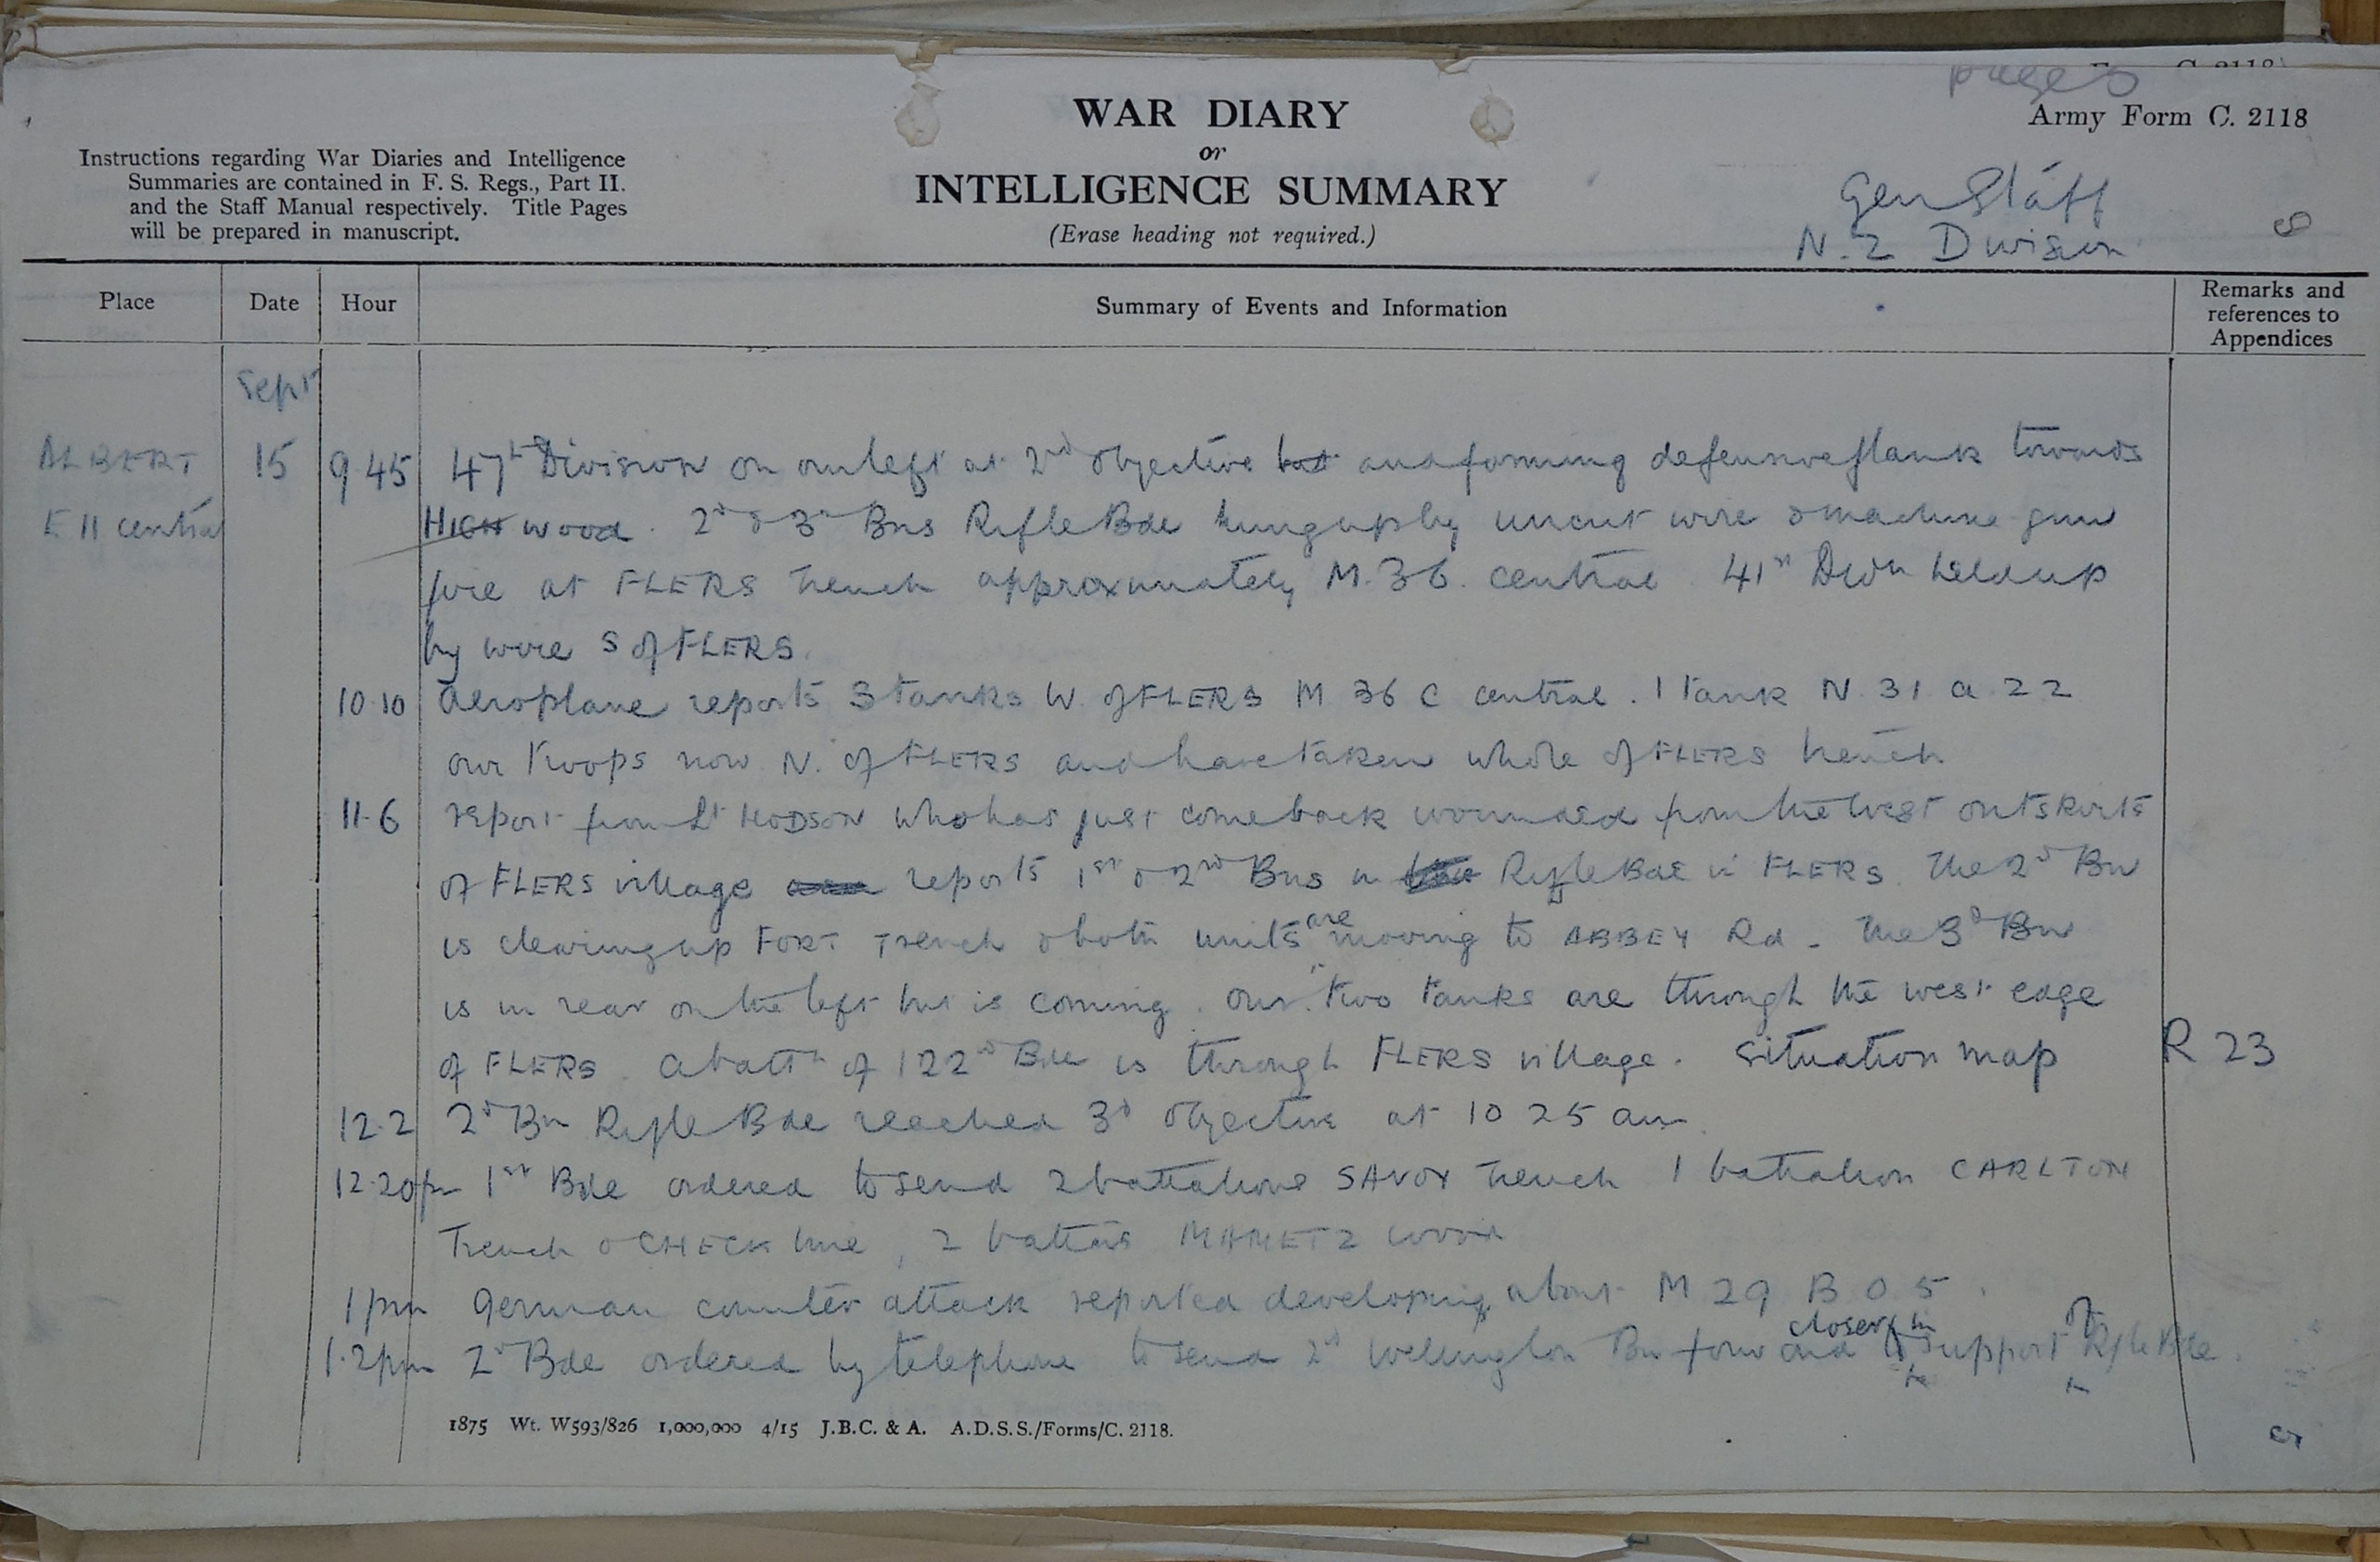 pages
Form C. 2118
Army Form C. 2118
WAR DIARY
or
INTELLIGENCE SUMMARY
(Erase heading not required.)
Instructions regarding War Diaries and Intelligence
Summaries are contained in F. S. Regs., Part II.
and the Staff Manual respectively. Title Pages
will be prepared in manuscript.
Gen Staff
N. Z Division
8
Place Date Hour Summary of Events and Information Remarks and references to Appendices
Sept
ALBERT 15 9.45 47th Division on our left at 2nd objective but and forming defensive flank towards
E 11 central HIGH wood. 2d & 3rd Bns Rifle Bde hung up by uncut wire & machine gun
fire at FLERS trench approximately M.36. central. 41st Divn held up
by wire S of FLERS.
10.10 Aeroplane reports 3 tanks W. of FLERS M 36 C central. 1 tank N. 31 a 22
our troops now N. of FLERS and have taken whole of FLERS trench
11.6 report from Lt HODSON who has just come back wounded from the west outskirts
of FLERS village reports 1st & 2nd Bns in Rifle Bde in FLERS. The 2d Bn
is clearing up FORT Trench & both units are moving to ABBEY Rd. The 3d Bn
is in rear on the left but is coming. Our two tanks are through the west edge
of FLERS. A battn of 122nd Bde is through FLERS village. Situation map R 23
12.2 2d Bn Rifle Bde reached 3d objective at 10 25 am.
12.20pm 1st Bde ordered to send 2 battalions SAVOY Trench 1 battalion CARLTON
Trench & CHECK line, 2 battns MAMETZ wood
1pm German counter attack reported developing about M 29 B 0 5.
1.2pm 2d Bde ordered by telephone to send 2d Wellington Bn forward closer in support of Rifle Bde.
1875 Wt. W593/826 1,000,000 4/15 J.B.C. & A. A.D.S.S./Forms/C. 2118.